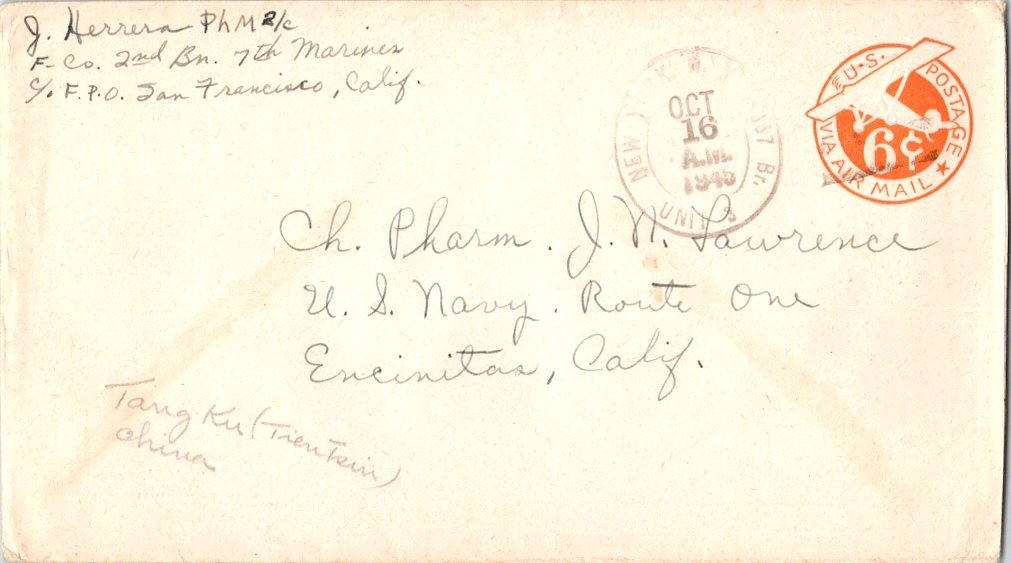 J. Herrera PhM 2/c
F- Co. 2nd Bn. 7th Marines
c/o F.P.O. San Francisco, Calif.
NEW
167 Br.
OCT
16
A.M.
1945
UNIT 3
U.S. POSTAGE
6¢
VIA AIR MAIL
Ch. Pharm. J. N. Lawrence
U. S. Navy. Route One
Encinitas, Calif.
Tang Ku (Tientsin)
China